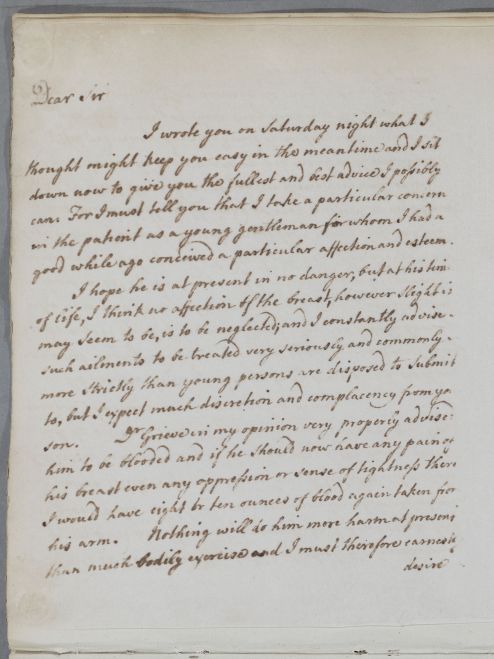 Dear Sir
I wrote you on Saturday night what I
thought might keep you easy in the meantime and I sit
down now to give you the fullest and best advice I possibly
can. For I must tell you that I take a particular concern
in the patient as a young gentleman for whom I had a
good while ago conceived a particular affection and esteem.
I hope he is at present in no danger, but at his time
of life, I think no affection of the breast, however slight it
may seem to be, is to be neglected; and I constantly advise
such ailments to be treated very seriously and commonly
more strictly than young persons are disposed to submit
to, but I expect much discretion and complacency from your
son. Dr Grieve in my opinion very properly advised
him to be blooded and if he should now have any pain of
his breast even any oppression or sense of tightness there
I would have eight or ten ounces of blood again taken from
his arm. Nothing will do him more harm at present
than much bodily exercise and I must therefore earnestly
desire